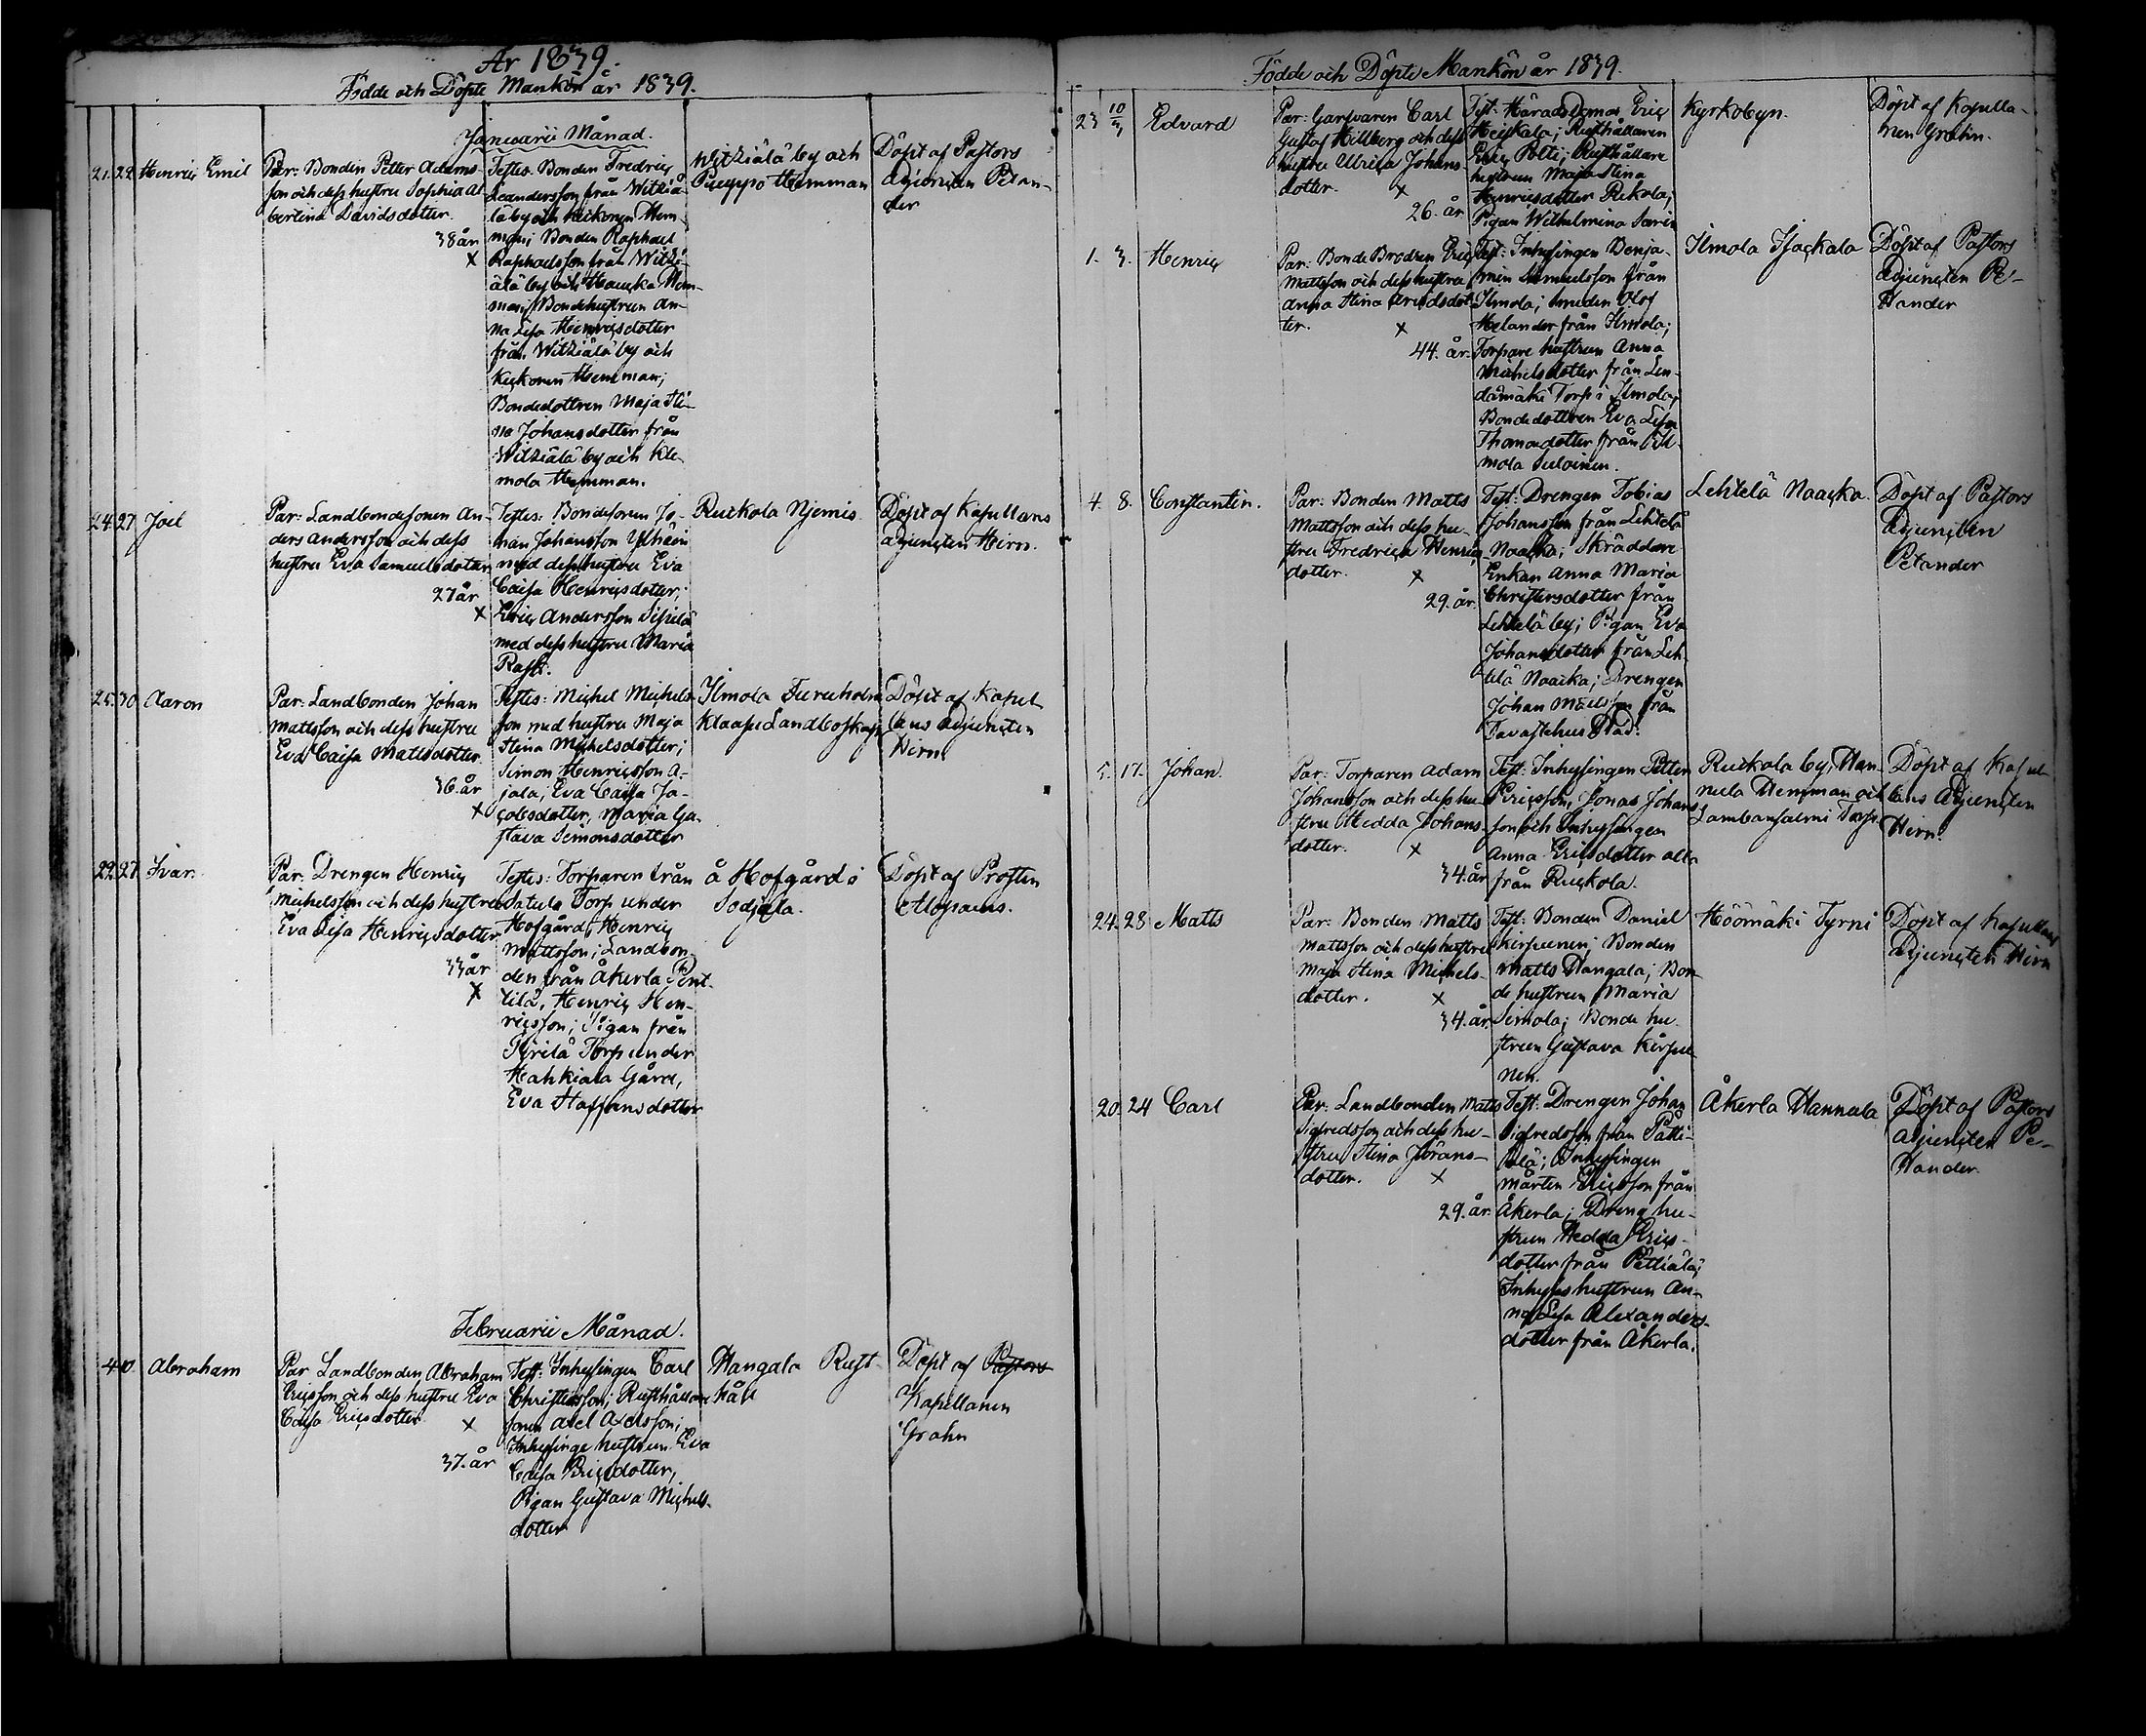 År 1839.
Födde och Döpte Mankön år 1839.
Januarii Månad.
21. 22 Henric Emil
Par: Bonden Petter Adams-
son och dess hustru Sophia Al
bertina Davidsdotter.
38 år
x
Testes. Bonden Fredric
Leandersson från Witziä-
lä by och Keckonen Hem-
man; Bonden Raphael
Raphaelsson från Witzi-
älä by och Haucka Hem-
man; Bondehustrun An-
na Lisa Henricsdotter
från Witziälä by och
Keckonen Hemman;
Bondedottren Maja Sti-
na Johansdotter från
Witziälä by och Kle-
mola Hemman.
Witziälä by och
Pueppo Hemman
Döpt af Pastors
Adjuncten Petan-
der
24. 27 Joel
Par: Landbondesonen An-
ders Andersson och dess
hustru Eva Samuelsdotter
27 år
x
Testes: Bondesonen Jo-
han Johansson
med dess hustru Eva
Caisa Henricsdotter;
Eric Andersson Sipilä
med dess hustru Maria
Ruckola Njemis
Döpt af Kapellans
Adjuncten Hirn.
25. 30 Aaron
Par: Landbonden Johan
Mattsson och dess hustru
Eva Caisa Mattsdotter
36. år
x
Testes: Michel Michels-
son med hustru Maja
Stina Michelsdotter;
Simon Henricsson A-
jala; Eva Caisa Ja-
cobsdotter, Maria Gu-
stava Simonsdotter
Ilmola Furuholm
Klaapu Landboskap
Döpt af Kapel-
lans Adjuncten
Hirn
22. 27 Ivar.
Par: Drengen Henric
Michelsson och dess hustru
Eva Lisa Henricsdotter
33 år
x
Testes: Torparen från
Satula Torp under
Hofgård, Henric
Mattsson; Landbon-
den från Åkerla Pent-
tilä, Henric Hen-
ricsson; Pigan från
Torp under
Hahkiala Gård,
Eva Staffansdotter
å Hofgård i
Sodjala.
Döpt af Prosten
Alopaeus.
Februarii Månad.
4. 10. Abraham
Par Landbonden Abraham
Ericsson och dess hustru Eva
Caisa Ericsdotter
x
37. år
Test: Inhysingen Carl
Christersson; Rusthållare
sonen Axel Axelsson;
Inhysinge hustrun Eva
Caisa Ericsdotter,
Pigan Gustava Michels-
dotter
Hangala Rust
håll
Döpt af Pastors
Kapellanen
Grahn
Födde och Döpte Mankön år 1839.
23 10/3 Edvard
Par: Garfvaren Carl
Gustaf Hillberg och dess
hustru Ulrica Johans-
dotter.
x
26. år
Test: Härads Domar. Eric
Heickala; Rusthållaren
Eric Poltti; Rusthållare
hustrun Maja Stina
Henricsdotter Rekola;
Pigan Wilhelmina Sarin
Kyrkobyn.
Döpt af Kapella-
nen Grahn.
1. 3. Henric
Par: Bonde Brodren Eric
Mattsson och dess hustru
Anna Stina Arvidsdot-
ter.
x
44. år.
Test: Inhysingen Benja-
min Samuelsson från
Ilmola; Smeden Olof
Melander från Ilmola;
Torpare hustrun Anna
Michelsdotter från Len-
dämäki Torp i Ilmola;
Bondedottren Eva Lisa
Thomasdotter från Il-
mola Suloinen.
Ilmola Isackala
Döpt af Pastors
Adjuncten Pe-
tander
4. 8. Constantin.
Par: Bonden Matts
Mattsson och dess hu-
stru Fredrica Henrics
dotter.
x
29. år.
Test: Drengen Tobias
Johansson från Lehtelä
Naacka; Skräddare
Enkan Anna Maria
Christersdotter från
Lehtelä by; Pigan Eva
Johansdotter från Leh-
telä Naacka; Drengen
Johan Mattsson från
Tavastehus Stad.
Lehtelä Naacka.
Döpt af Pastors
Adjuncten
Petander
5. 17. Johan.
Par: Torparen Adam
Johansson och dess hu-
stru Hedda Johans-
dotter.
x
34. år
Test: Inhysingen Petter
Ericsson, Jonas Johans
son och Inhysingen
Anna Ericsdotter alla
från Ruckola.
Ruckola by, Han-
nula Hemman och
Lambansalmi Torp.
Döpt af Kapel-
lans Adjuncten
Hirn.
24. 28 Matts
Par: Bonden Matts
Mattsson och dess hustru
Maja Stina Michels-
dotter.
x
34. år.
Test: Bonden Daniel
Kirpunen; Bonden
Matts Hangala; Bon-
de hustrun Maria
Simola; Bonde hu-
strun Gustava Kirpu-
nen.
Höömäki Tyrni
Döpt af Kapellans
Adjuncten Hirn
20. 24 Carl
Par: Landbonden Matts
Sigfredsson och dess hu-
stru Stina Jöräns-
dotter.
x
29. år.
Test: Drengen Johan
Sigfredsson från Pätti-
älä; Inhysingen
Mårten Ericsson från
Åkerla; Dreng hu-
strun Hedda Erics-
dotter från Pättiälä;
Inhyses hustrun An-
na Lisa Alexanders-
dotter från Åkerla.
Åkerla Hannula
Döpt af Pastors
Adjuncten Pe-
tander